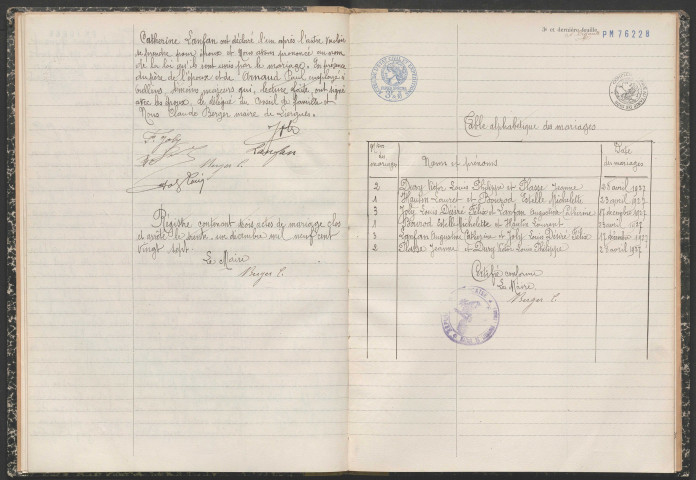 Catherine Lanfan ont déclaré l'un après l'autre vouloir
se prendre pour époux et nous avons prononcé au nom
de la loi qu'ils sont unis par le mariage. En présence
du père de l'époux et de Arnaud Paul employé à
témoins majeurs qui, lecture faite, ont signé
avec les époux, le délégué du Conseil de famille et
Nous Claude Berger maire de
F. Joly
Joly
Lanfan
Berger C.
Registre contenant trois actes de mariage clos
et arrêté le trente un décembre mil neuf cent
vingt sept.
Le Maire
Berger C.
3e et dernier feuillet
PM 76228
Table alphabétique des mariages
Nos
du
mariage
Noms et prénoms
Date
des mariages
2 Dury Victor Louis Philippe et Plasse Jeanne 28 avril 1927
1 Hautin Louret et Estelle Michelette 23 avril 1927
3 Joly Louis Désiré Félix et Lanfan Augustine Catherine 17 décembre 1927
1 Estelle Michelette et Hautin 23 avril 1927
3 Lanfan Augustine Catherine et Joly Louis Désiré Félix 17 décembre 1927
2 Plasse Jeanne et Dury Victor Louis Philippe 28 avril 1927
Certifié conforme
Le Maire,
Berger C.